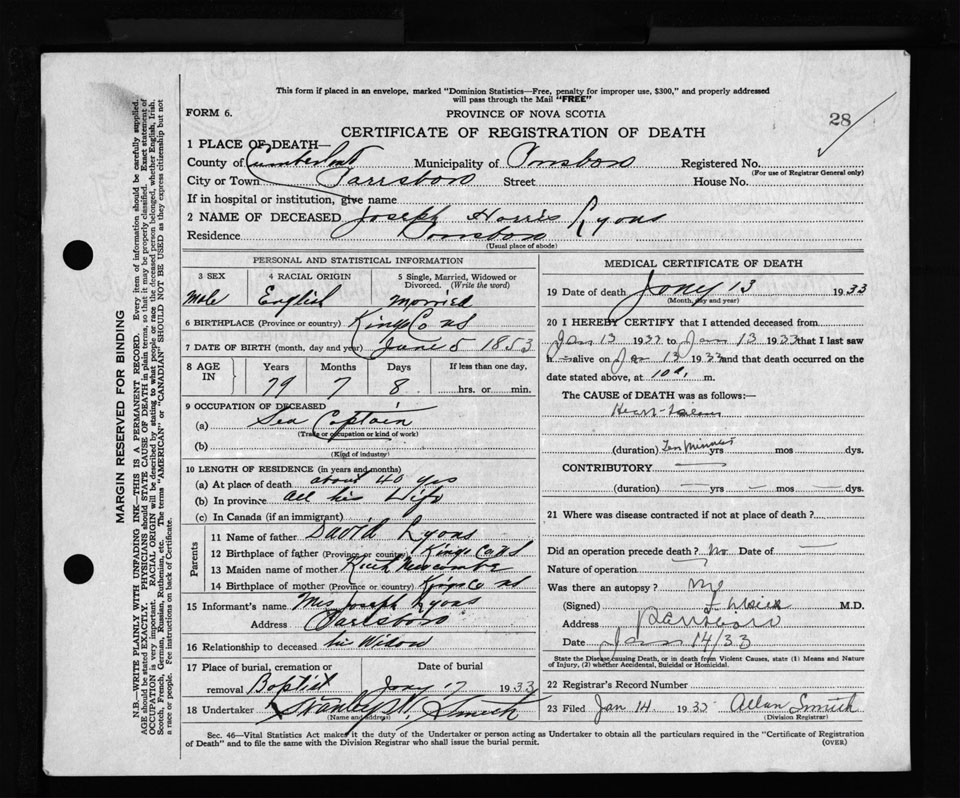 This form if placed in an envelope, marked "Dominion Statistics—Free, penalty for improper use, $300," and properly addressed
will pass through the Mail "FREE"
FORM 6.
PROVINCE OF NOVA SCOTIA
28
CERTIFICATE OF REGISTRATION OF DEATH
1 PLACE OF DEATH—
County of Cumberland Municipality of Parrsboro Registered No.
(For use of Registrar General only)
City or Town Parrsboro Street House No.
If in hospital or institution, give name
2 NAME OF DECEASED Joseph Harris Lyons
Residence Parrsboro
(Usual place of abode)
PERSONAL AND STATISTICAL INFORMATION
3 SEX 4 RACIAL ORIGIN 5 Single, Married, Widowed or Divorced. (Write the word)
Male English Married
6 BIRTHPLACE (Province or country) Kings Co NS
7 DATE OF BIRTH (month, day and year) June 5 1853
8 AGE IN Years Months Days If less than one day,
79 7 8 hrs. or min.
9 OCCUPATION OF DECEASED
(a) Sea Captain
(Trade or occupation or kind of work)
(b)
(Kind of industry)
10 LENGTH OF RESIDENCE (in years and months)
(a) At place of death about 40 yrs
(b) In province all his life
(c) In Canada (if an immigrant)
Parents
11 Name of father David Lyons
12 Birthplace of father (Province or country) Kings Co NS
13 Maiden name of mother Ruth Newcombe
14 Birthplace of mother (Province or country) Kings Co NS
15 Informant's name Mrs Joseph Lyons
Address Parrsboro
16 Relationship to deceased his Widow
17 Place of burial, cremation or Date of burial
removal Baptist Jany 17 1933
18 Undertaker Stanley W. Smith
(Name and address)
MEDICAL CERTIFICATE OF DEATH
19 Date of death Jany 13 1933
(Month, day and year)
20 I HEREBY CERTIFY that I attended deceased from
Jan 13 1933 to Jan 13 1933 that I last saw
h alive on Jan 13 1933 and that death occurred on the
date stated above, at 10 a. m.
The CAUSE of DEATH was as follows:—
Heart-Failure
(duration) Ten Minutes yrs mos. dys.
CONTRIBUTORY
(duration) yrs. mos. dys.
21 Where was disease contracted if not at place of death?
Did an operation precede death? No Date of
Nature of operation
Was there an autopsy? No
(Signed) M.D.
Address Parrsboro
Date Jan 14/33
State the Disease causing Death, or in death from Violent Causes, state (1) Means and Nature
of Injury, (2) whether Accidental, Suicidal or Homicidal.
22 Registrar's Record Number
23 Filed Jan 14 1933 Allan Smith
(Division Registrar)
Sec. 46—Vital Statistics Act makes it the duty of the Undertaker or person acting as Undertaker to obtain all the particulars required in the "Certificate of Registration
of Death" and to file the same with the Division Registrar who shall issue the burial permit.
(OVER)
MARGIN RESERVED FOR BINDING
N.B.—WRITE PLAINLY WITH UNFADING INK—THIS IS A PERMANENT RECORD. Every item of information should be carefully supplied.
AGE should be stated EXACTLY. PHYSICIANS should STATE CAUSE OF DEATH in plain terms, so that it may be properly classified. Exact statement of
OCCUPATION is very important. RACIAL ORIGIN will be described by stating to what people or race the deceased person belonged, whether English, Irish,
Scotch, French, German, Russian, Ruthenian, etc. The terms "AMERICAN" or "CANADIAN" SHOULD NOT BE USED as they express citizenship but not
a race or people. Fee instructions on back of Certificate.